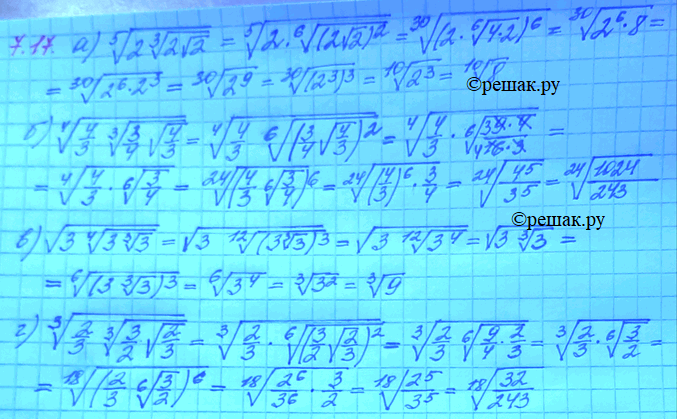 7.17. а) ⁵√(2 ³√(2√2)) = ⁵√(2 · ⁶√((2√2)²)) = ³⁰√((2 · ⁶√(4·2))⁶) = ³⁰√(2⁶·8) =
= ³⁰√(2⁶·2³) = ³⁰√(2⁹) = ³⁰√((2³)³) = ¹⁰√(2³) = ¹⁰√8
©решак.ру
б) ⁴√(4/3 ³√(3/4 √(4/3))) = ⁴√(4/3 ⁶√((3/4 √(4/3))²)) = ⁴√(4/3 · ⁶√(39·4/416·3)) =
= ⁴√(4/3 · ⁶√(3/4)) = ²⁴√((4/3 ⁶√(3/4))⁶) = ²⁴√((4/3)⁶ · 3/4) = ²⁴√(4⁵/3⁵) = ²⁴√(1024/243)
©решак.ру
в) √(3 ⁴√(3 ³√3)) = √(3 ¹²√((3 ³√3)³)) = √(3 ¹²√(3⁴)) = √(3 ³√3) =
= ⁶√((3 ³√3)³) = ⁶√(3⁴) = ³√(3²) = ³√9
г) ³√(2/3 ³√(3/2 √(2/3))) = ³√(2/3 · ⁶√((3/2 √(2/3))²)) = ³√(2/3 ⁶√(9/4 · 2/3)) = ³√(2/3 · ⁶√(3/2)) =
= ¹⁸√((2/3 ⁶√(3/2))⁶) = ¹⁸√(2⁶/3⁶ · 3/2) = ¹⁸√(2⁵/3⁵) = ¹⁸√(32/243)